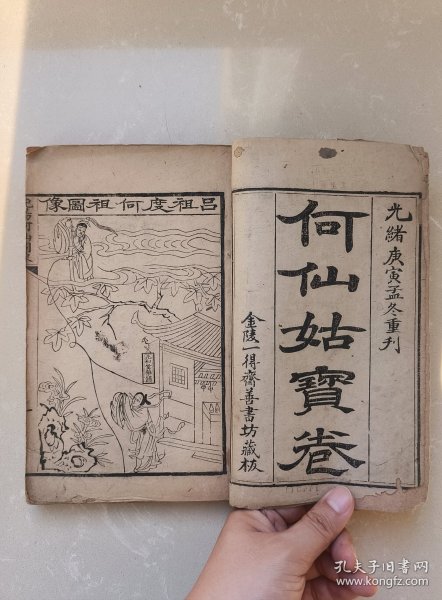 光緒庚寅孟冬重刊
何仙姑寶卷
金陵一得齋善書坊藏板
呂祖度何祖圖像
孔夫子旧书网
www.kongfz.com